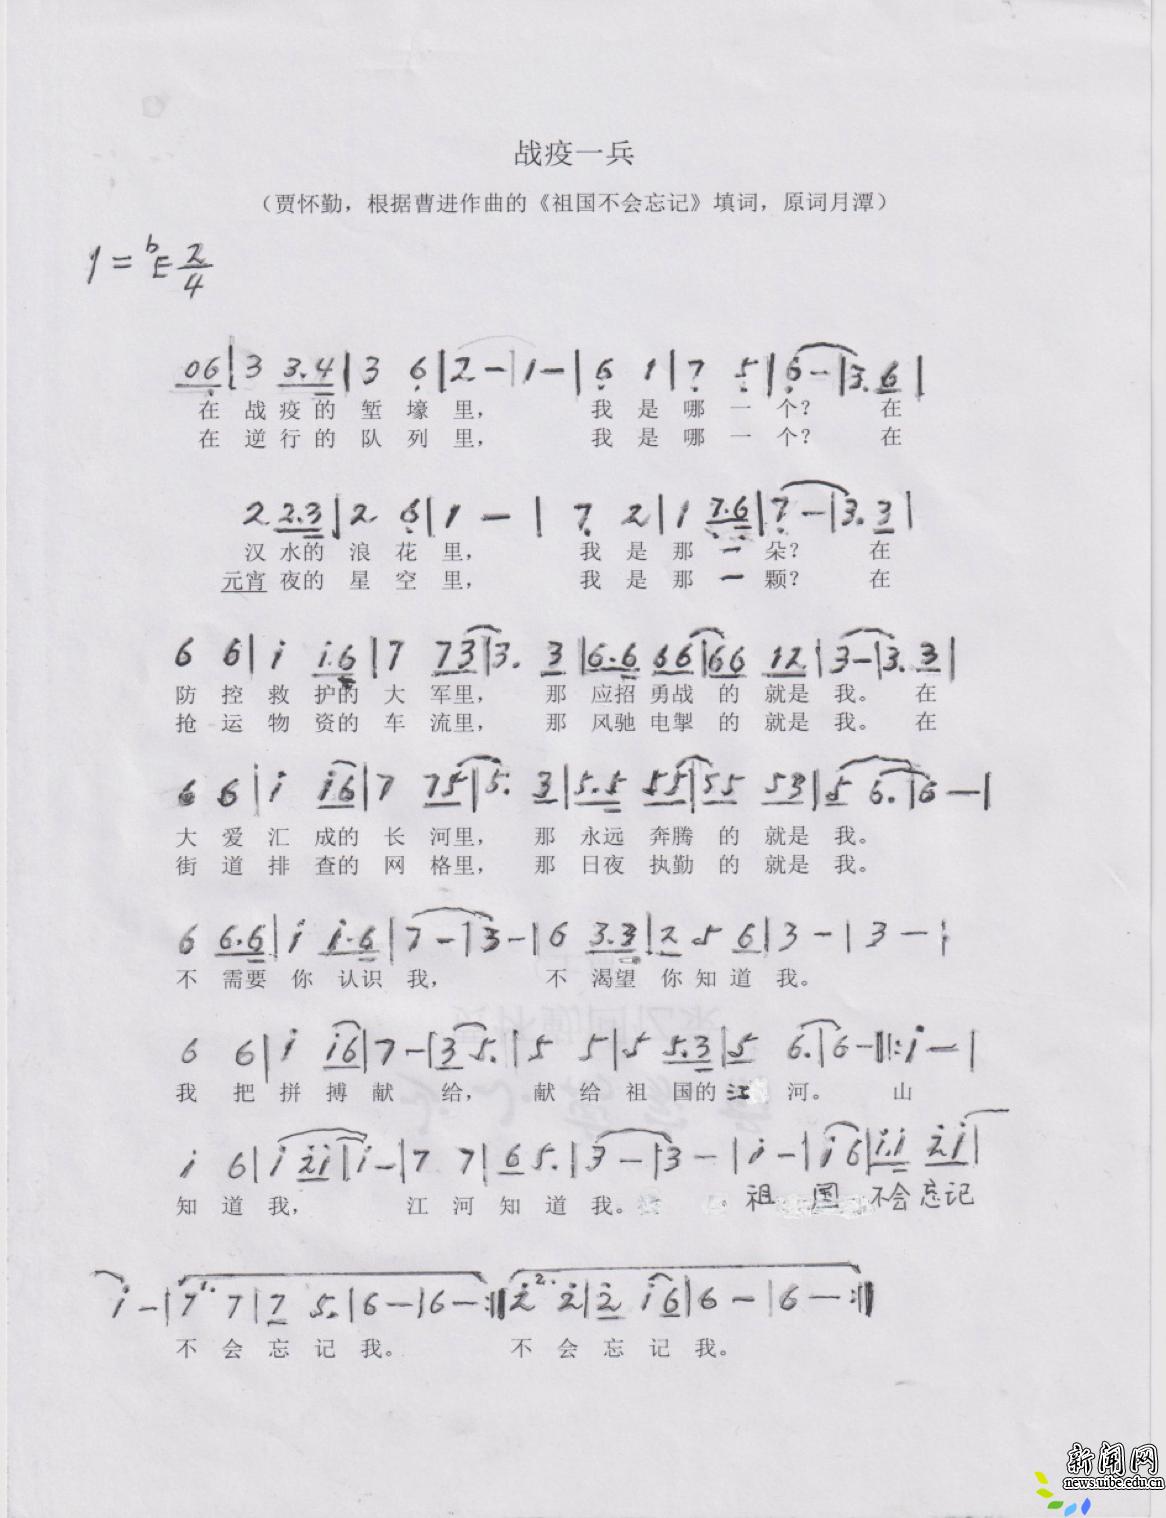 战疫一兵
（贾怀勤，根据曹进作曲的《祖国不会忘记》填词，原词月潭）
1=ᵇE 2/4
06|3 3.4|3 6|2-|1-|6 1|7 5|6-|3.6|
在 战 疫 的 堑 壕 里， 我 是 哪 一 个？ 在
在 逆 行 的 队 列 里， 我 是 哪 一 个？ 在
2 2.3|2 6|1 -| 7 2|1 7.6|7-|3.3|
汉 水的 浪 花 里， 我 是 那 一 朵？ 在
元宵 夜的 星 空 里， 我 是 那 一 颗？ 在
6 6|i i.6|7 73|3. 3|6.6 66|66 12|3-|3.3|
防 控 救 护的 大 军里， 那 应招 勇战 的 就是 我。 在
抢 运 物 资的 车 流里， 那 风驰 电掣 的 就是 我。 在
6 6|i i6|7 75|5. 3|5.5 55|55 53|5 6.|6-|
大 爱 汇 成的 长 河里， 那 永远 奔腾 的 就是 我。
街 道 排 查的 网 格里， 那 日夜 执勤 的 就是 我。
6 6.6|i i.6|7-|3-|6 3.3|2 5 6|3-|3-|
不 需要 你 认识 我， 不 渴望 你 知 道 我。
6 6|i i6|7-|3 5.|5 5|5 5.3|5 6.|6-‖:i-|
我 把 拼 搏 献 给， 献 给 祖 国的 江 河。 山
i 6|i 2i|i-|7 7|6 5.|3-|3-|i-|i6|i.i 2i|
知 道 我， 江 河 知 道 我。 祖 国 不会 忘记
i-|1. 7 7|7 5.|6-|6-:‖2. 2 2|2 i6|6-|6-:‖
不 会 忘 记 我。 不 会 忘 记 我。
新闻网
news.uibe.edu.cn